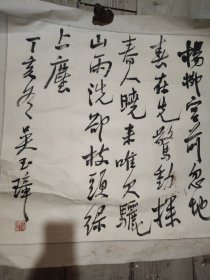 楊柳宫前忽地
春在先驚動探
春人曉来唯欠驪
山雨洗卻枝頭绿
上塵
丁亥冬吴玉璋